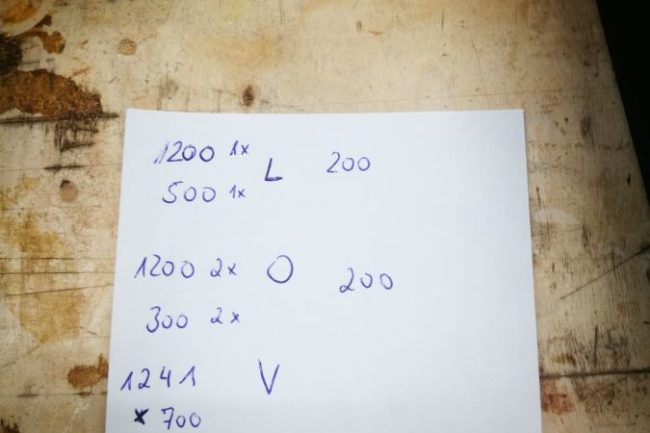 1200 1x L 200
500 1x
1200 2x O 200
300 2x
1241 V
x 700